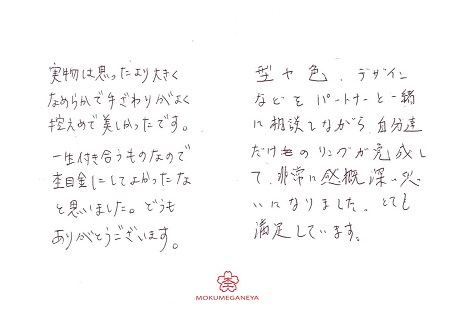 実物は思ったより大きく
なめらかで手ざわりがよく
控えめで美しかったです。
一生付き合うものなので
杢目金にしてよかったな
と思いました。どうも
ありがとうございます。
型や色、デザイン
などをパートナーと一緒
に相談しながら、自分達
だけのリングが完成し
て、非常に感慨深い思
いになりました。とても
満足しています。
MOKUMEGANEYA